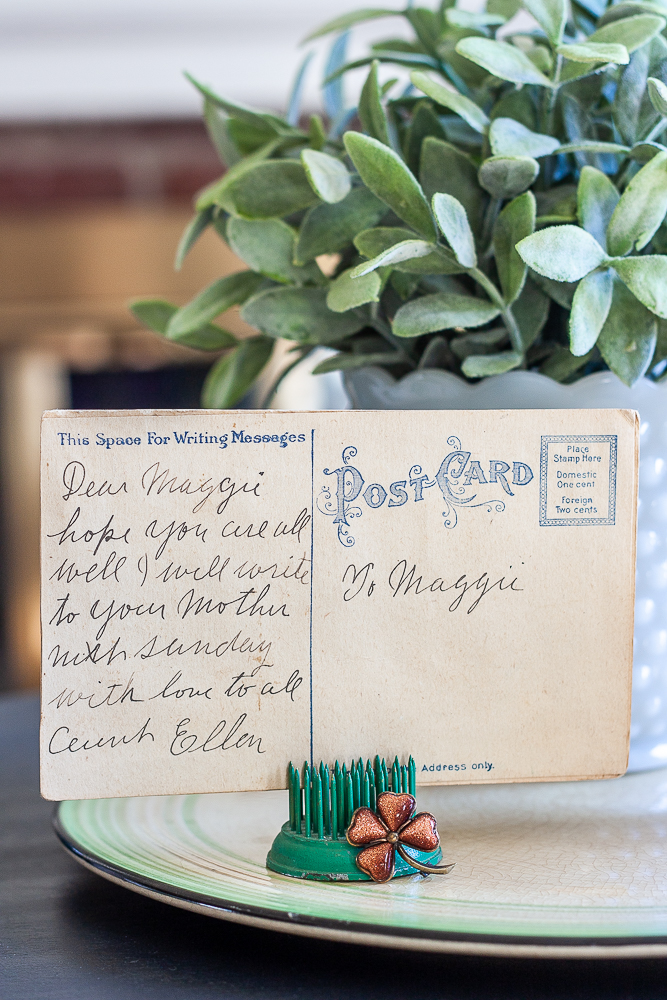 This Space For Writing Messages
Dear Maggie
hope you are all
well I will write
to your Mother
next sunday
with love to all
aunt Ellen
POST CARD
Place
Stamp Here
Domestic
One cent
Foreign
Two cents
To Maggie
Address only.